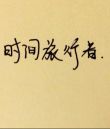 时间旅行者.